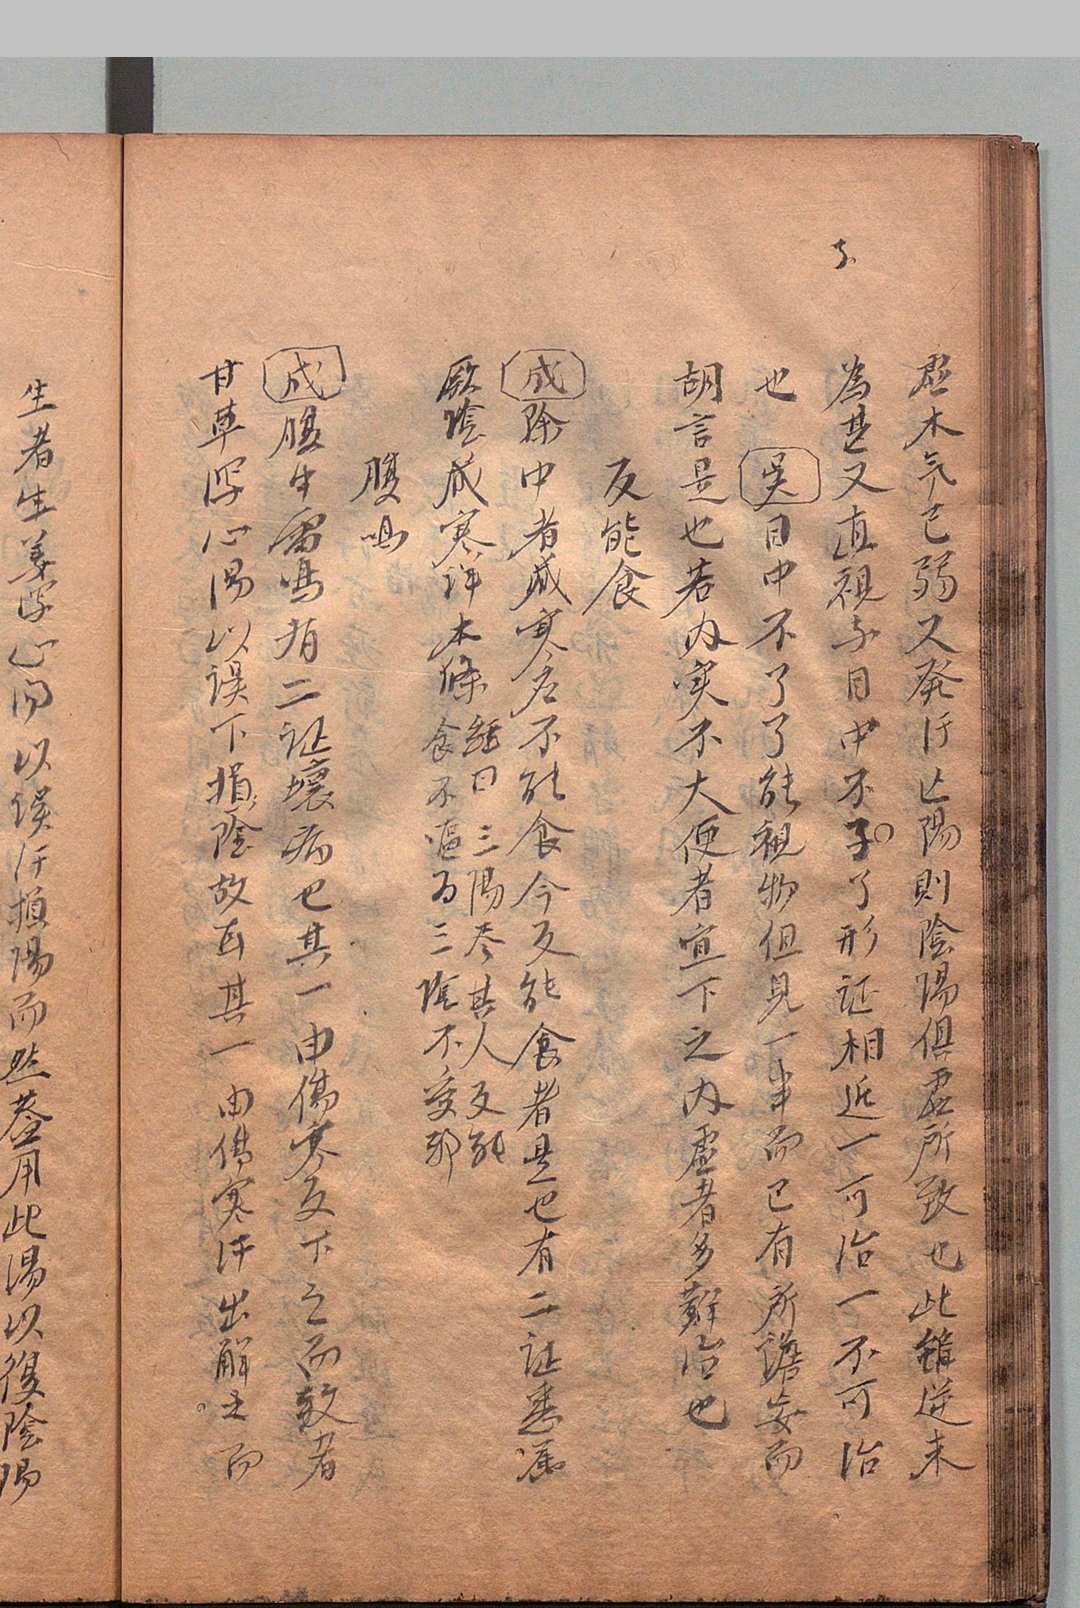 了
虚木气已弱又発汗亡陽則陰陽俱虚所致也此錯逆未
為甚又直視与目中不子了形证相近一可治一不可治
也 吳 目中不了了能視物但見一半而已有所譫妄而
胡言是也若内実不大便者宜下之内虚者多難治也
反能食
成 除中者咸寒名不能食今反能食者是也有二证悉属
厥陰咸寒详本條 経曰三陽尽其人反能
食不嘔为三陰不受邪
腹鳴
成 腹中雷鳴有二证壞病也其一由傷寒反下之而致者
甘草泻心湯以误下損陰故耳其一由傷寒汗出解之而
生者生姜泻心汤以误汗損陽而然盖用此湯以復陰陽